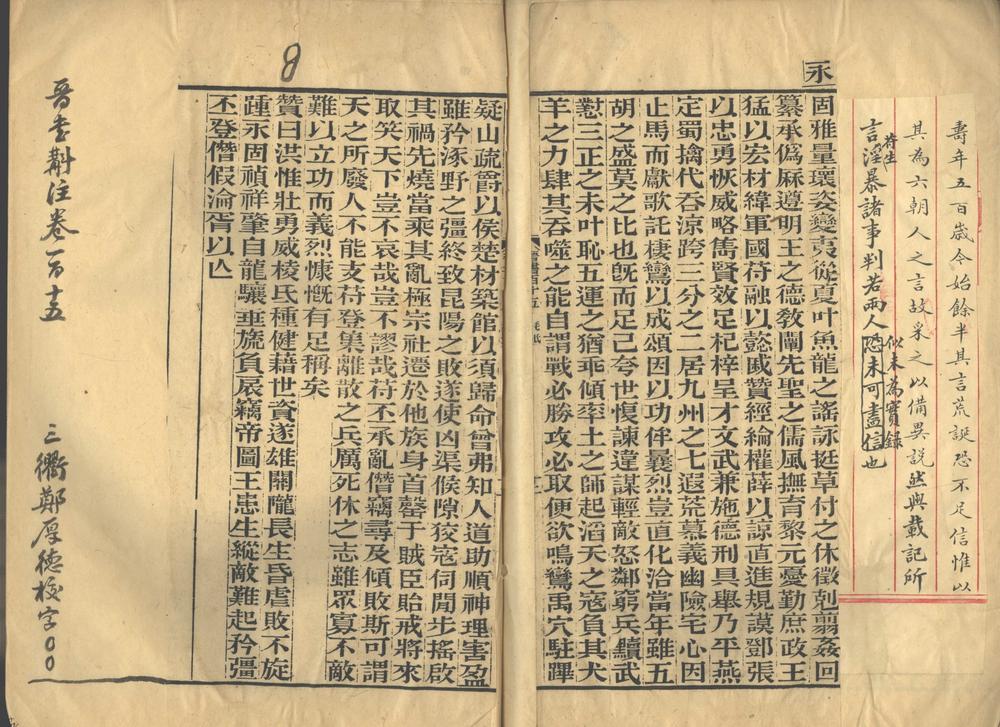 壽年五百歲今始餘半其言荒誕恐不足信惟以
其為六朝人之言故采之以備異説然與載記所
言苻生淫暴諸事判若兩人似未為實錄恐未可盡信也
永
固雅量瓌姿變夷從夏叶魚龍之謠詠挺草付之休徵剋翦姦回
纂承僞厤遵明王之德敎闡先聖之儒風撫育黎元憂勤庶政王
猛以宏材緯軍國苻融以懿戚贊經綸權薛以諒直進規謨鄧張
以忠勇恢威略雋賢效足杞梓呈才文武兼施德刑具舉乃平燕
定蜀擒代吞涼跨三分之二居九州之七遐荒慕義幽險宅心因
止馬而獻歌託棲鸞以成頌因以功侔曩烈豈直化洽當年雖五
胡之盛莫之比也旣而足己夸世愎諫違謀輕敵怒鄰窮兵黷武
懟三正之未叶恥五運之猶乖傾率土之師起滔天之寇負其犬
羊之力肆其吞噬之能自謂戰必勝攻必取便欲鳴鸞禹穴駐蹕
疑山疏爵以侯楚材築館以須歸命曾弗知人道助順神理害盈
雖矜涿野之彊終致昆陽之敗遂使凶渠候隙狡寇伺閒步搖啟
其禍先燒當乘其亂極宗社遷於他族身首罄于賊臣貽戒將來
取笑天下豈不哀哉豈不謬哉苻丕承亂僭竊尋及傾敗斯可謂
天之所廢人不能支苻登集離散之兵厲死休之志雖眾寡不敵
難以立功而義烈慷慨有足稱矣
贊曰洪惟壯勇威棱氐種健藉世資遂雄關隴長生昏虐敗不旋
踵永固禎祥肇自龍驤垂旒負扆竊帝圖王患生縱敵難起矜彊
丕登僭假淪胥以亾
8
晉書斠注卷一百十五
三衢鄭厚德校字〇〇